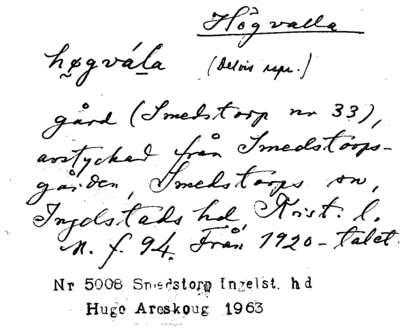 Högvalla
høgvála (Delvis rspr.)
gård (Smedstorp nr 33),
avstyckad från Smedstorps-
gården, Smedstorps sn,
Ingelstads hd, Krist. l.
M. f. 94. Från 1920-talet.
Nr 5008 Smedstorp Ingelst. hd
Hugo Areskoug 1963